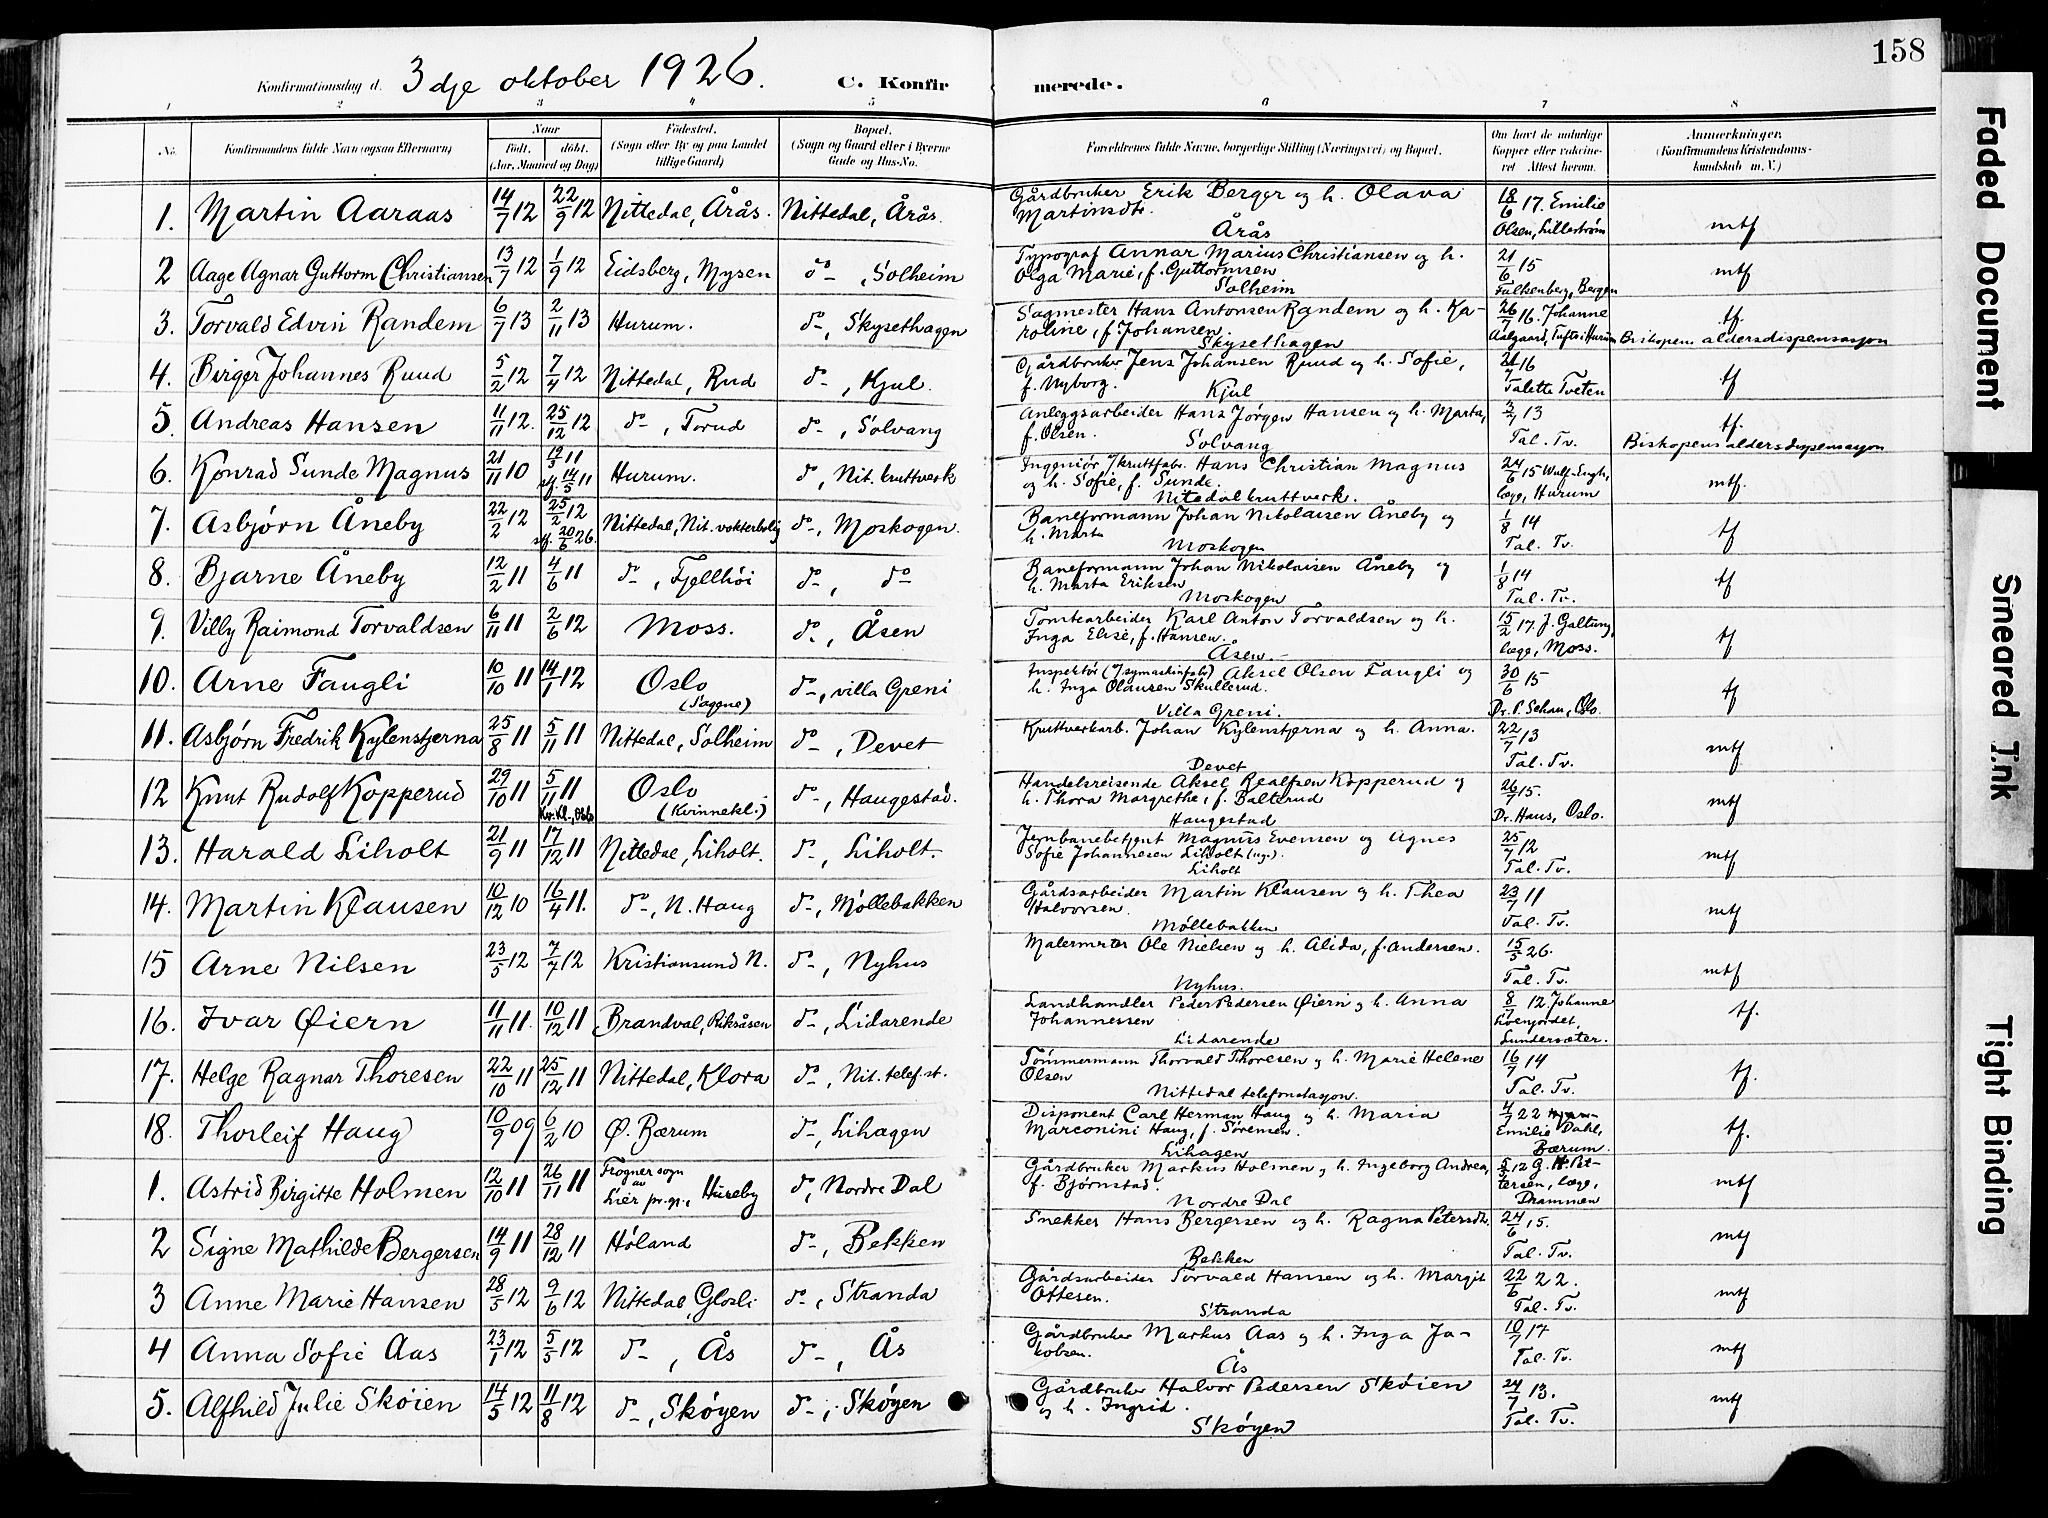 158
Konfirmationsdag d. 3dje oktober 1926. C. Konfirmerede.
1 2 3 4 5 6 7 8
No. Konfirmandens fulde Navn (ogsaa Efternavn) Naar Født. døbt. (Aar, Maaned og Dag) Fødested. (Sogn eller By og paa Landet tillige Gaard) Bopæl. (Sogn og Gaard eller i Byerne Gade og Hus-No. Forældrenes fulde Navne, borgerlige Stilling (Næringsvei) og Bopæl. Om havt de naturlige Kopper eller vaccineret Attest herom. Anmærkninger. (Konfirmandens Kristendomskundskab m. V.)
1. Martin Aaraas 14/7 12 22/9 12 Nittedal, Årås. Nittedal, Årås. Gårdbruker Erik Berger og h. Olava Martinsdtr. Årås 18/6 17. Emilie Olsen, Lillestrøm mtf
2 Aage Agnar Guttorm Christiansen 13/7 12 1/9 12 Eidsberg, Mysen do-, Solheim Typograf Annar Marius Christiansen og h. Olga Marie, f. Guttormsen Solheim 21/6 15 Falkenberg, Bergen mtf
3. Torvald Edvin Randem 6/7 13 2/11 13 Hurum. do-, Skysethagen Sagmester Hans Antonsen Randem og h. Karoline, f. Johansen. Skysethagen 26/7 16. Johanne Aalgaard, Tofte i Hurum tf. Biskopens aldersdispensasjon
4. Birger Johannes Ruud 5/2 12 7/4 12 Nittedal, Rud do-, Kjul. Gårdbruker Jens Johansen Ruud og h. Sofie, f. Nyborg. Kjul 21/7 16 Talette Tveten tf
5. Andreas Hansen 11/11 12. 25/12 12 do-, Torud do-, Solvang Anleggsarbeider Hans Jørgen Hansen og h. Marta, f. Olsen. Solvang 3/7 13 Tal. Tv. tf. Biskopens aldersdispensasjon
6. Konrad Sunde Magnus 21/11 10 11 stf. 14/5 11 Hurum. do, Nit. kruttverk Ingeniør v/kruttfabr. Hans Christian Magnus og h. Sofie, f. Sunde. Nitedal kruttverk. 24/6 15 læge, Hurum mtf.
7. Asbjørn Åneby 22/2 12 25/2 12 stf. 20/6 26. Nittedal, Nit. vokterbolig do-, Moskogen. Baneformann Johan Nikolaisen Åneby og h. Marta Moskogen 1/8 14 Tal. Tv. tf
8. Bjarne Åneby 12/2 11 4/6 11 do-, Fjellhøi do-, do Baneformann Johan Nikolaisen Åneby og h. Marta Eriksen Moskogen 1/8 14 Tal. Tv. tf
9. Villy Raimond Torvaldsen 6/11 11 2/6 12 Moss. do-, Åsen Tomtearbeider Karl Anton Torvaldsen og h. Inga Elise, f. Hansen. Åsen. 15/2 17. J. Galtung, læge, Moss. tf
10. Arne Faugli 10/10 11 14/1 12 Oslo (Sagene) do-, villa Greni Inspektør Aksel Olsen Faugli og h. Inga Olausen Skullerud. Villa Greni. 30/6 15 Dr. P. Schau, Oslo. tf
11. Asbjørn Fredrik Kylenstjerna 25/8 11 5/11 11 Nittedal, Solheim do-, Devet Kruttverkarb. Johan Kylenstjerna og h. Anna. Devet 22/7 13 Tal. Tv. mtf
12 Knut Rudolf Kopperud 29/10 11 5/11 11 Kv. Kl., Oslo Oslo (Kvinnekl.) do-, Haugestad. Handelsreisende Aksel Realfsen Kopperud og h. Thora Margrethe, f. Balterud Haugestad 26/7 15. Dr. Haus, Oslo. mtf
13. Harald Liholt 21/9 11 17/12 11 Nittedal, Liholt. do-, Liholt. Jernbanebetjent Magnus Evensen og Agnes Sofie Johannesen Liholt (ug.). Liholt 25/7 12 Tal. Tv. mtf
14. Martin Klausen 10/12 10 16/4 11. do-, N. Haug do-, Møllebakken Gårdsarbeider Martin Klausen og h. Thea Halvorsen. Møllebakken 23/7 11 Tal. Tv. mtf
15 Arne Nilsen 23/5 12 7/7 12 Kristiansund N. do-, Nyhus Malermester Ole Nielsen og h. Alida, f. Andersen. Nyhus. 15/5 26. Tal. Tv. mtf
16. Ivar Øiern 11/11 11. 10/12 11 Brandval, Riksåsen do-, Lidarende Landhandler Peder Pedersen Øiern og h. Anna Johannessen Lidarende 8/7 12. Johanne Løenjordet, Lundersæter. tf.
17. Helge Ragnar Thoresen 22/10 11 25/12 11 Nittedal, Klora do-, Nit. telef. st. Tømmermann Thorvald Thoresen og h. Marie Helene Olsen Nittedal telefonstasjon. 16/7 14 Tal. Tv. tf.
18. Thorleif Haug 10/9 09 6/2 10 Ø. Bærum do-, Lihagen Disponent Carl Herman Haug og h. Maria Marconini Haug, f. Sørensen. Lihagen 4/7 22 Emilie Dahl, Bærum. tf.
1. Astrid Birgitte Holmen 12/10 11 26/11 11 Frogner sogn av Lier pr.gj., Huseby do, Nordre Dal Gårdbruker Markus Holmen og h. Ingeborg Andrea, f. Bjørnstad. Nordre Dal 12 G. H. Pettersen, læge, Drammen mtf
2 Signe Mathilde Bergersen 14/9 11 28/12 11 Høland do-, Bekken Snekker Hans Bergersen og h. Ragna Petersdtr. Bekken 24/6 15. Tal. Tv. mtf
3 Anne Marie Hansen 28/5 12 9/6 12 Nittedal, Glosli do-, Stranda Gårdsarbeider Torvald Hansen og h. Margit Ottesen. Stranda 22/6 22. Tal. Tv. mtf
4 Anna Sofie Aas 23/1 12 5/5 12 do-, Ås do-, Ås Gårdbruker Markus Aas og h. Inga Jakobsen. Ås 10/7 17 Tal. Tv. mtf
5. Alfhild Julie Skøien 14/5 12 11/8 12 do-, Skøyen do-, Skøyen Gårdbruker Halvor Pedersen Skøien og h. Ingrid. Skøyen 24/7 13. Tal. Tv. mtf
Faded Document
Smeared Ink
Tight Binding